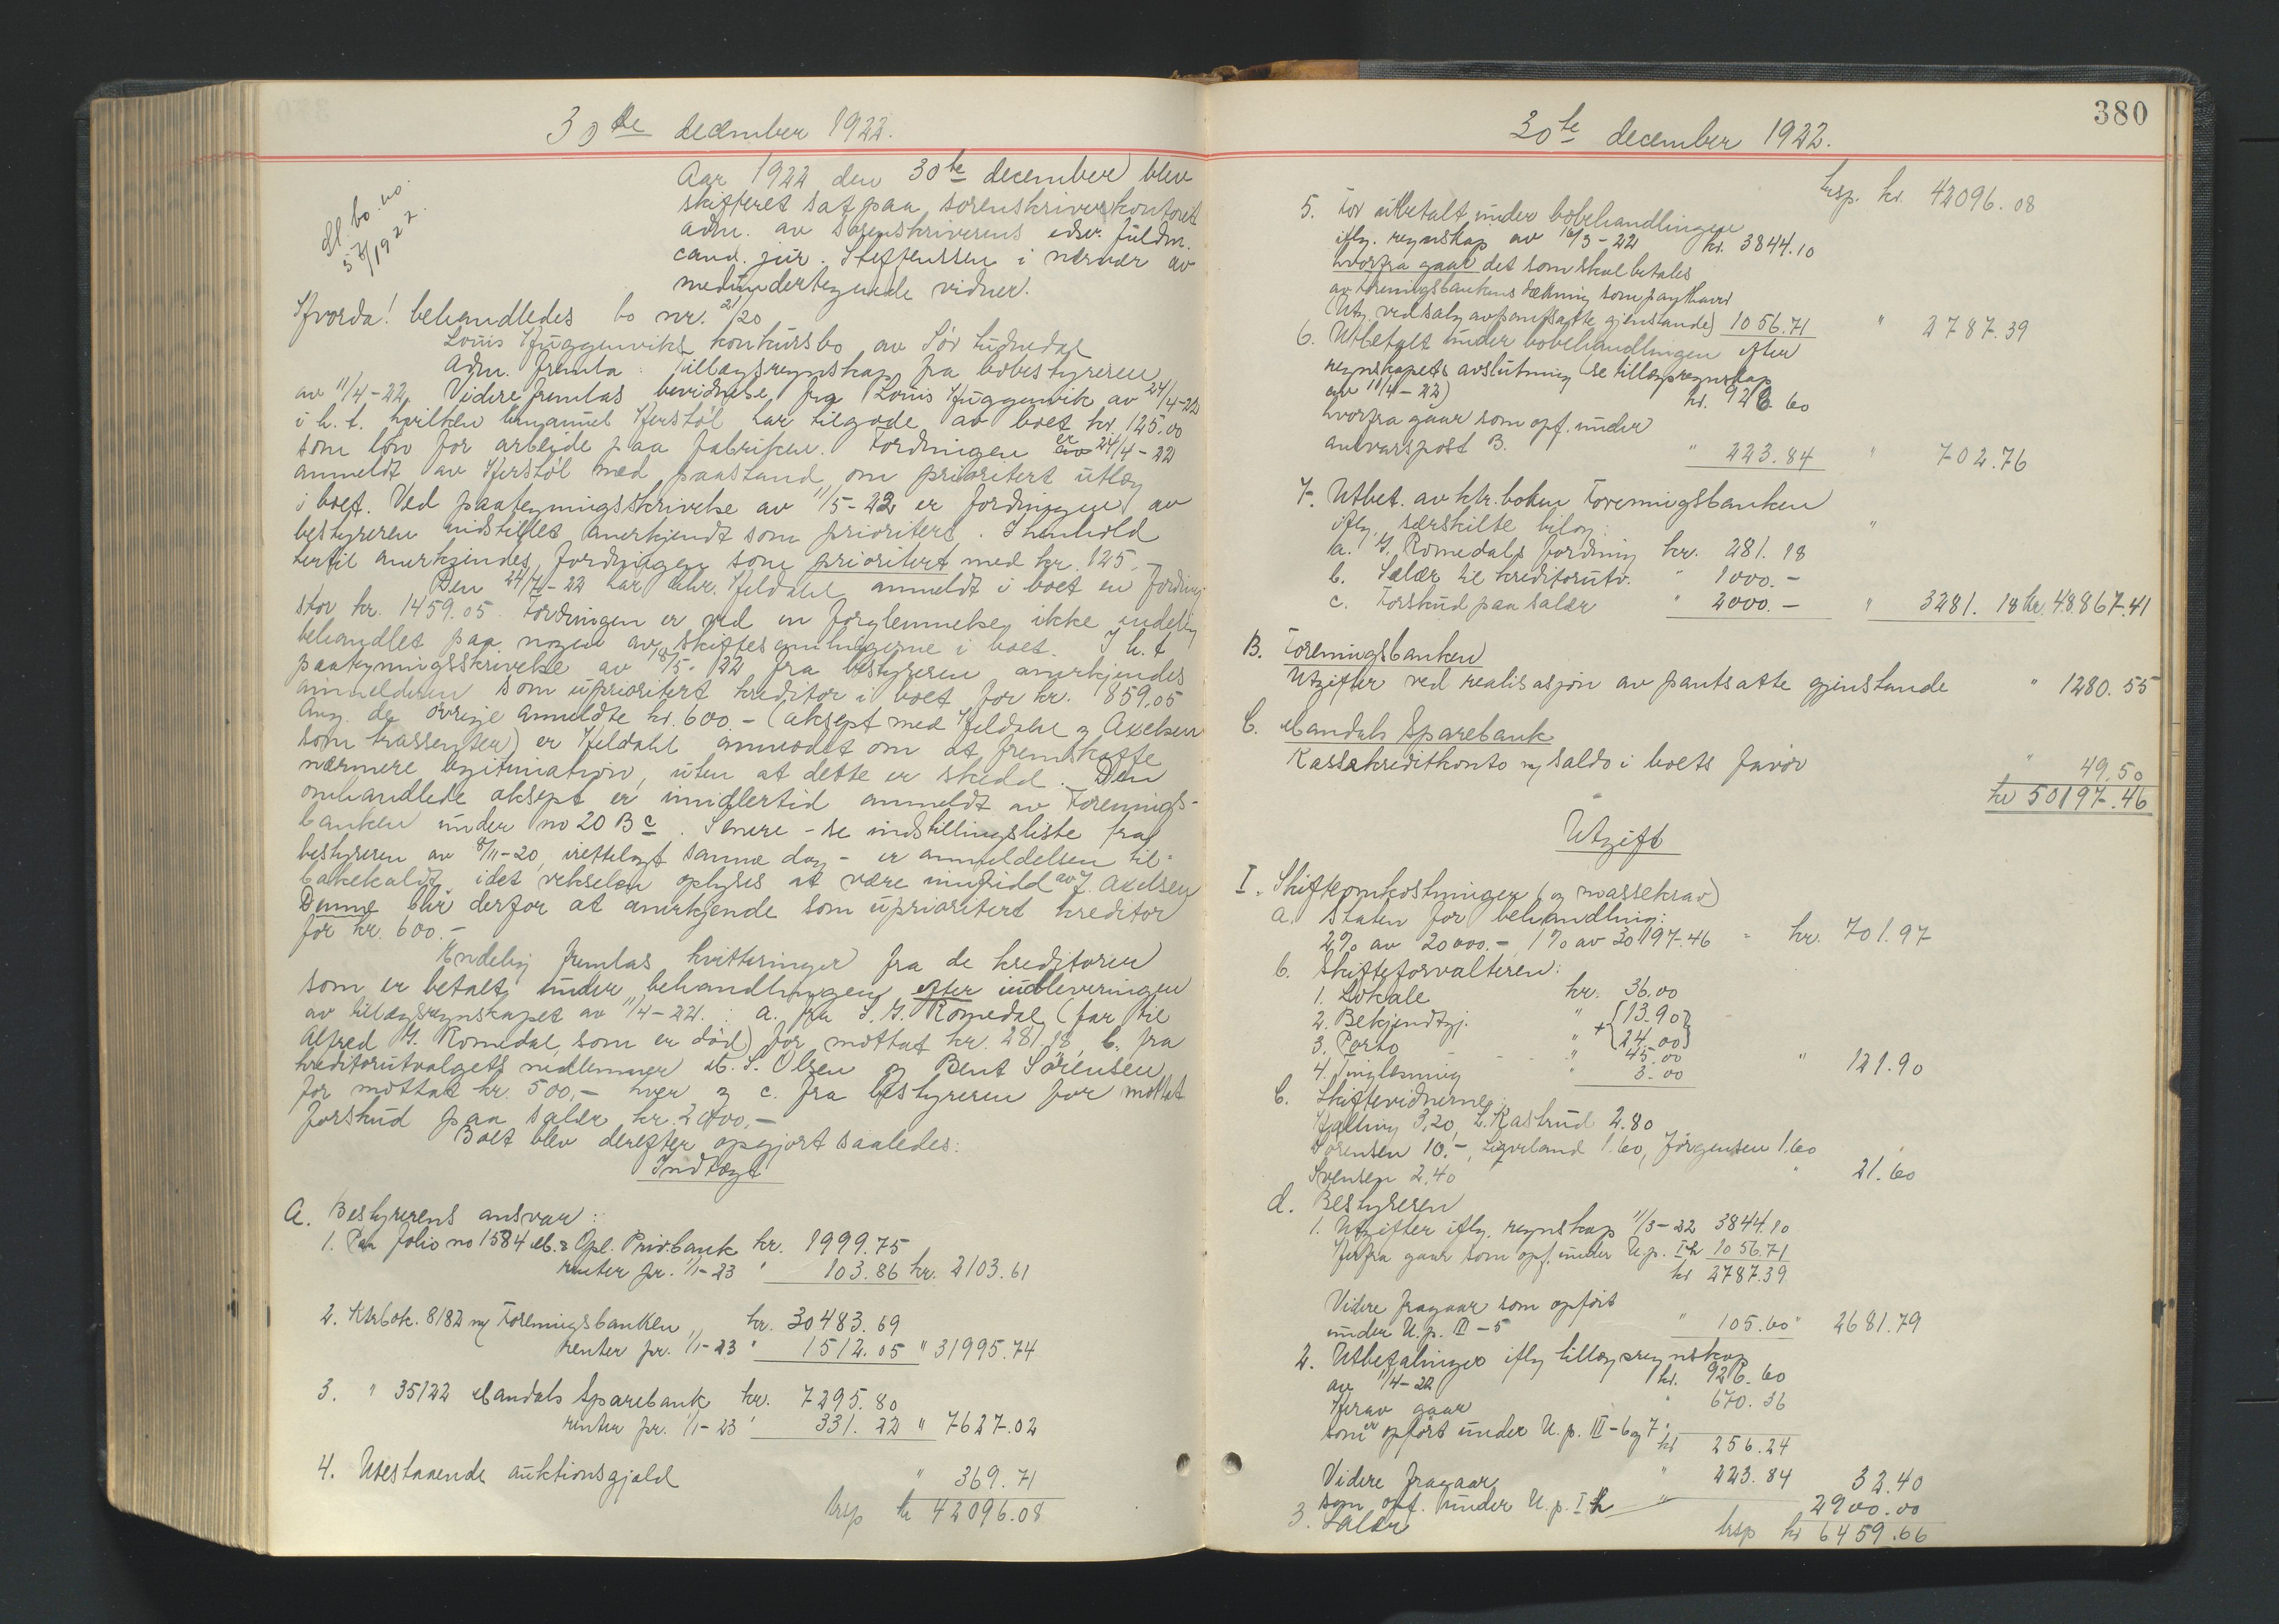 30te december 1922.
Aar 1922 den 30te december blev
skifteret sat paa sorenskriverkontoret
adm. av sorenskriverens edsv. fuldm.
cand. jur. Steffenssen i nærvær av
medundertegnede vidner.
bo. no.
/1922.
Hvorda! behandledes bo nr. 21/20
Louis Huggenviks konkursbo av Sør Audnedal
Adm. fremla: tillægsregnskap fra bobestyreren
av 11/4-22. Videre fremlas bevidnelse fra Louis Huggenvik av 24/4-22
i h. t. hvilken Emanuel Herstøl har tilgode av boet kr. 125.00
som løn for arbeide paa fabriken. Fordringen er 24/4-22
anmeldt av Herstøl med paastand om prioritert utlæg
i boet. Ved paategningsskrivelse av 11/5-22 er fordringen av
bestyreren indstillet anerkjendt som prioritert. I henhold
hertil anerkjendes fordringen som prioritert med kr. 125.-
Den 24/4-22 har adv. Heldahl anmeldt i boet en fordring
stor kr. 1459.05. Fordringen er ved en forglemmelse ikke endelig
behandlet paa nogen av skiftesamlingerne i boet. I h. t.
paategningsskrivelse av 18/5-22 fra bestyreren anerkjendes
anmelderen som uprioritert kreditor i boet for kr. 859.05
Ang. de øvrige anmeldte kr. 600- (aksept med Heldahl og Axelsen
som trassenter) er Heldahl anmodet om at fremskaffe
nærmere legitimation, uten at dette er skedd. Den
omhandlede aksept er imidlertid anmeldt av Forenings-
banken under no 20 Bc. Senere - se indstillingsliste fra
bestyreren av 8/11-20 irettelagt samme dag - er anmeldelsen til-
bakekaldt idet vekselen oplyses at være innfridd av J. Axelsen
Denne blir derfor at anerkjende som uprioritert kreditor
for kr. 600.-
Endelig fremlas kvitteringer fra de kreditorer
som er betalt under behandlingen efter indleveringen
av tillægsregnskapet av 11/4-22.: a. fra S. G. Romedal (far til
Alfred G. Romedal som er død) for mottat kr. 281.18, b. fra
kreditorutvalgets medlemmer M. S. Olsen og Bent Sørensen
for mottat kr. 500,- hver og c. fra bestyreren for mottat
forskud paa salær kr. 2000.-
Boet blev derefter opgjort saaledes:
Indtægt
A. Bestyrerens ansvar:
1. Paa folio no 1584 M. & Opl. Priv.bank kr. 1999.75
renter pr. 1/1-23 " 103.86 kr. 2103.61
2. Ktrbok. 8182 m/ Foreningsbanken kr. 30483.69
renter pr. 1/1-23 " 1512.05 " 31995.74
3. " 35122 Mandals Sparebank kr. 7295.80
renter pr. 1/1-23 " 331.22 " 7627.02
4. Utestaaende auktionsgjæld " 369.71
trsp kr 42096.08
380
30te december 1922.
trsp. kr. 42096.08
5. For utbetalt under bobehandlingen
iflg. regnskap av 11/3-22 kr. 3844.10
hvorfra gaar det som skal betales
av Foreningsbankens dækning som panthaver
(Utg. ved salg av pantsatte gjenstande) 1056.71 " 2787.39
6. Utbetalt under bobehandlingen efter
regnskapets avslutning (se tillægsregnskap
av 11/4-22) kr. 926.60
hvorfra gaar som opf. under
ansvarspost B. " 223.84 " 702.76
7. Utbet. av ktr.boken Foreningsbanken
iflg. særskilte bilag: "
a. G. Romedals fordring kr. 281.18
b. Salær til kreditorutv. " 1000.-
c. Forskud paa salær " 2000.- " 3281.18 kr. 48867.41
B. Foreningsbanken
Utgifter ved realisasjon av pantsatte gjenstande " 1280.55
C. Mandals Sparebank
Kassakreditkonto m/ saldo i boets favør " 49.50
kr 50197.46
Utgift
I. Skifteomkostninger (og massekrav)
a. Staten for behandling:
2% av 20000.- 1% av 30197.46 - kr. 701.97
b. Skifteforvalteren:
1. Lokale kr. 36.00
2. Bekjendtgj. " {13.90}
+ {24.00}
3. Porto " 45.00
4. Tinglæsning " 3.00 " 121.90
c. Skiftevidnerne:
Hælling 3,20, L. Kastrud 2.80
Sørensen 10.-, Ligvland 1.60, Jørgensen 1.60
Svensen 2.40 " 21.60
d. Bestyreren
1. Utgifter iflg. regnskap 11/3-22 3844.10
Herfra gaar som opf. under U.p. I h 1056.71
kr 2787.39
Videre fragaar som opført
under U.p. II-5 " 105.60 " 2681.79
2. Utbetalinger iflg tillægsregnskap
av 11/4-22 kr. 926.60
Herav gaar " 670.36
som er opført under U.p. III-6 og 7. kr 256.24
Videre fragaar " 223.84 32.40
som opf. under U.p. I h "
3. Salær 2900.00
trsp kr 6459.66